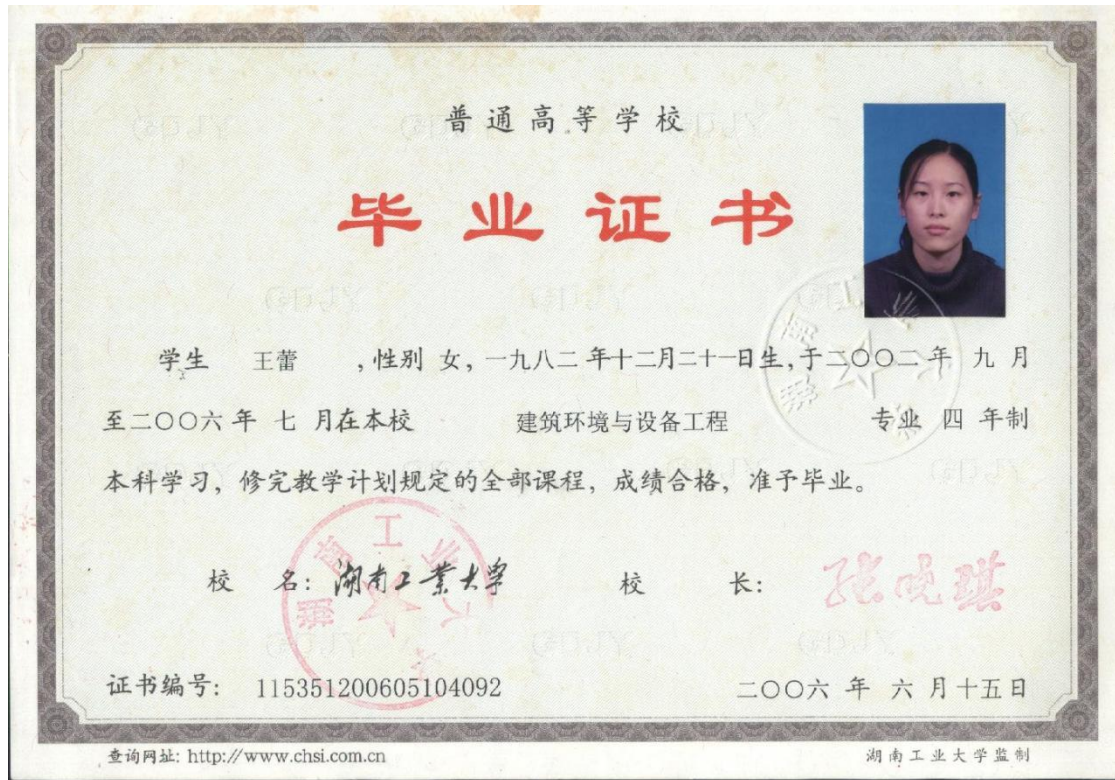 普通高等学校
毕业证书
学生 王蕾 ,性别 女,一九八二 年十二月二十一日生,于二〇〇二年 九 月
至二〇〇六 年 七 月在本校 建筑环境与设备工程 专业 四 年制
本科学习,修完教学计划规定的全部课程,成绩合格,准予毕业。
校 名: 湖南工業大学 校 长: 张晓琪
湖南工业大学
湖南工业大学
证书编号: 115351200605104092 二〇〇六 年 六 月十五日
查询网址: http://www.chsi.com.cn 湖南工业大学监制